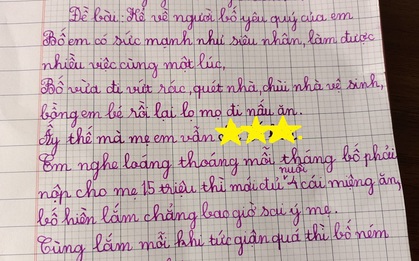 Đề bài: Kể về người bố yêu quý của em
Bố em có sức mạnh như siêu nhân, làm được
nhiều việc cùng một lúc.
Bố vừa đi vứt rác, quét nhà, chùi nhà vệ sinh,
bồng em bé rồi lại lọ mọ đi nấu ăn.
Ấy thế mà mẹ em vẫn
Em nghe loáng thoáng mỗi tháng bố phải
nộp cho mẹ 15 triệu thì mới đủ nuôi 4 cái miệng ăn,
bố hiền lắm chẳng bao giờ sai ý mẹ.
Cùng lắm mỗi khi tức giận quá thì bố ném